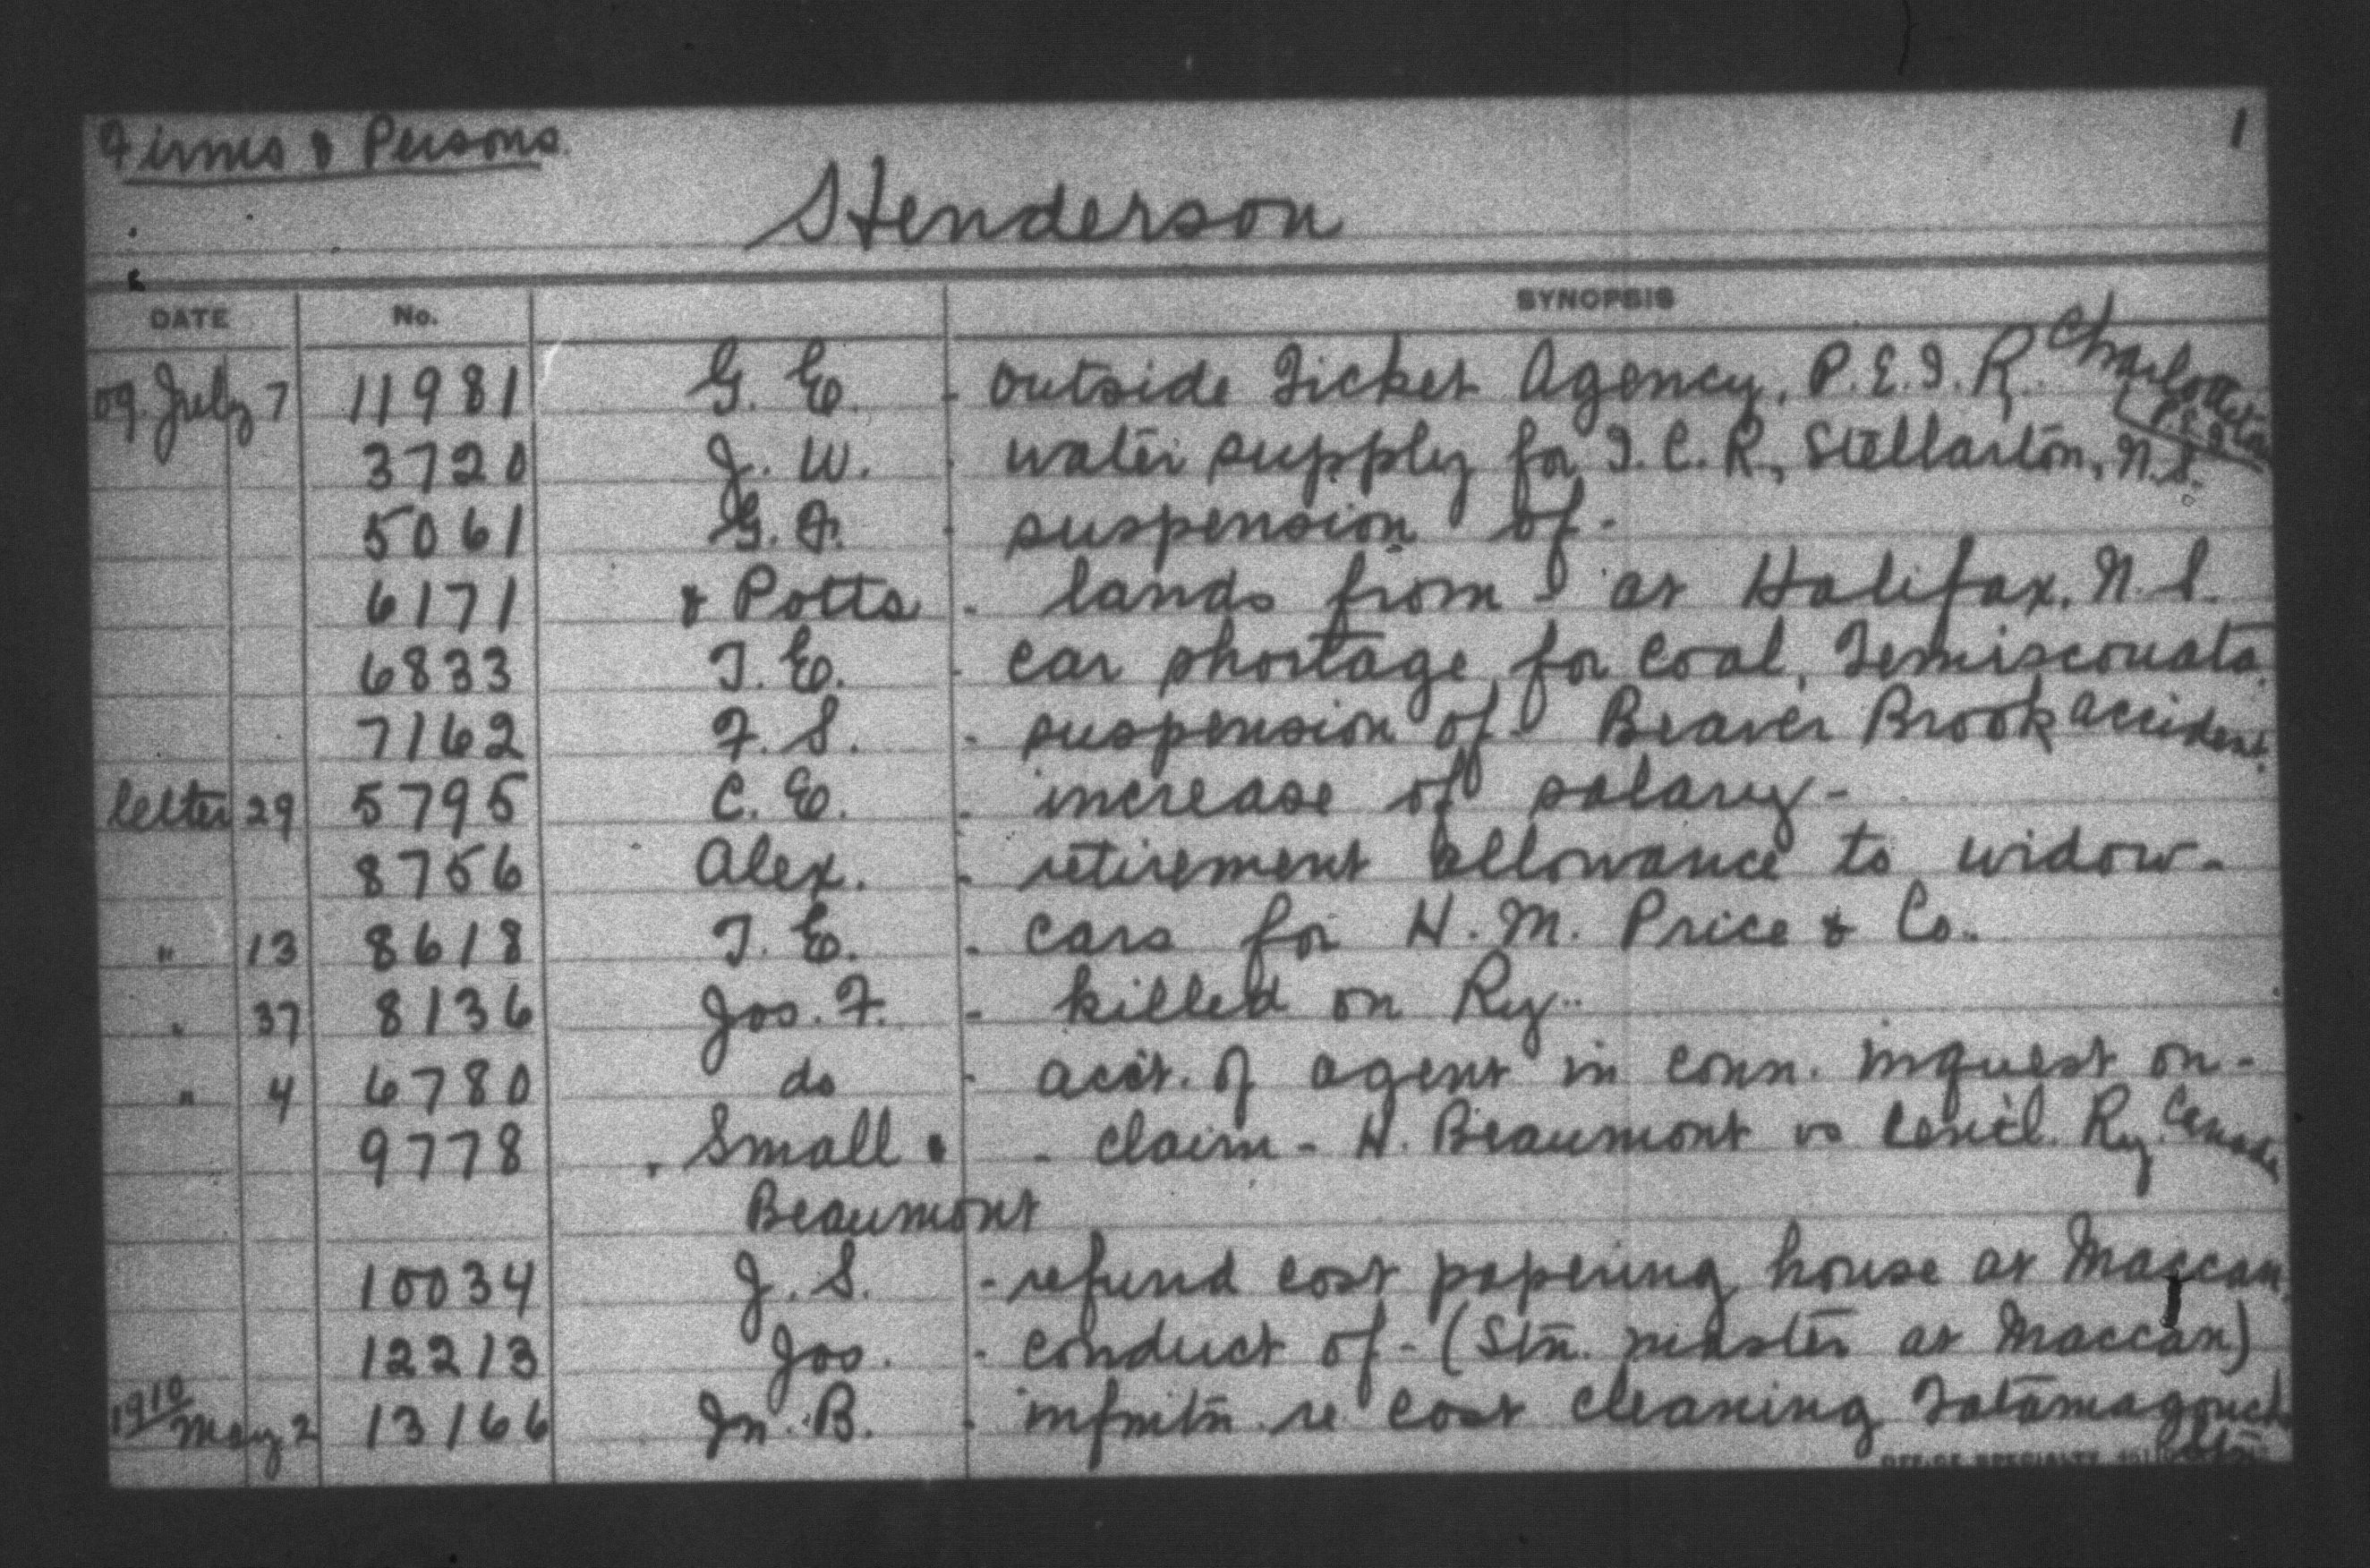 Firms & Persons. 1
Henderson
DATE No. SYNOPSIS
09. July 7 11981 G. E. - Outside Ticket Agency, P.E.I. R. Charlottetown
P.E.I.
3720 J. W. - water supply for I.C.R., Stellarton, N.S.
5061 G. F. - suspension of -
6171 & Potts - lands from - at Halifax, N.S.
6833 T. E. - car shortage for coal, Temiscouata.
7162 F. S. - suspension of - Beaver Brook accident.
letter 29 5795 C. E. - increase of salary -
8756 Alex. - retirement allowance to widow -
" 13 8618 T. E. - cars for H. M. Price & Co.
" 37 8136 Jos. F. - killed on Ry.
" 4 6780 do - acct. of agent in conn. inquest on -
9778 Small & - claim - H. Beaumont vs Ry. Canada
Beaumont
10034 J. S. - refund cost papering house at Maccan.
12213 Jos. - conduct of - (Stn. master at Maccan)
1910
May 2 13166 Jn. B. - infmtn re cost cleaning Tatamagouche
OFFICE SPECIALTY